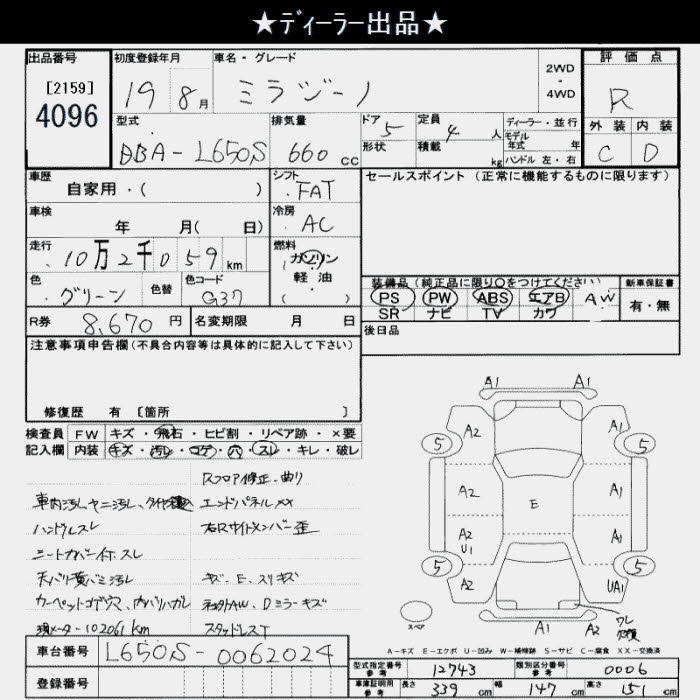 ★ディーラー出品★
出品番号 初度登録年月 車名・グレード 2WD ・ 4WD 評価点
[2159] 4096 19 8月 ミラジーノ R
型式 排気量 ドア 5 定員 4人 ディーラー・並行 外装 内装
形状 積載 kg モデル年式 年
DBA-L650S 660cc ハンドル 左・右 C D
車歴 シフト セールスポイント (正常に機能するものに限ります)
自家用・( ) FAT
車検 冷房
年 月( 日) AC
走行 燃料
10万2千059km ガソリン
色 色替 色コード 軽油 装備品(純正品に限り○をつけてください) 新車保証書
グリーン G37 ( ) PS PW ABS エアB AW 有・無
SR ナビ TV カワ
R券 8,670円 名変期限 月 日 後日品
注意事項申告欄(不具合内容等は具体的に記入して下さい)
修復歴 有 [箇所 ]
検査員 FW キズ・飛石・ヒビ割・リペア跡・×要
記入欄 内装 キズ・汚レ・コゲ・穴・スレ・キレ・破レ
Rフロア修正・曲り
車内汚レヤニ汚レ、 エンドパネル××
ハンドルスレ 右Rサイドメンバー歪
シートカバー付 スレ
天バリ黄バミ汚レ キズ・E、スリキズ
カーペットコゲ穴、内バリハガレ 社外AW、Dミラーキズ
現メーター102061km スタッドレスT
A1 A1
A2 A1
5 5
A2 E A1
A2 U1 A1
5 5
A2 UA1
スペア A1 A2 ワレ 欠損
A-キズ E-エクボ U-凹み W-補修跡 S-サビ C-腐食 XX-交換済
車台番号 L650S-0062024
型式指定番号 参考 12743 類別区分番号 参考 0006
登録番号 車庫証明用 参考 長さ 339cm 幅 147cm 高さ 151cm